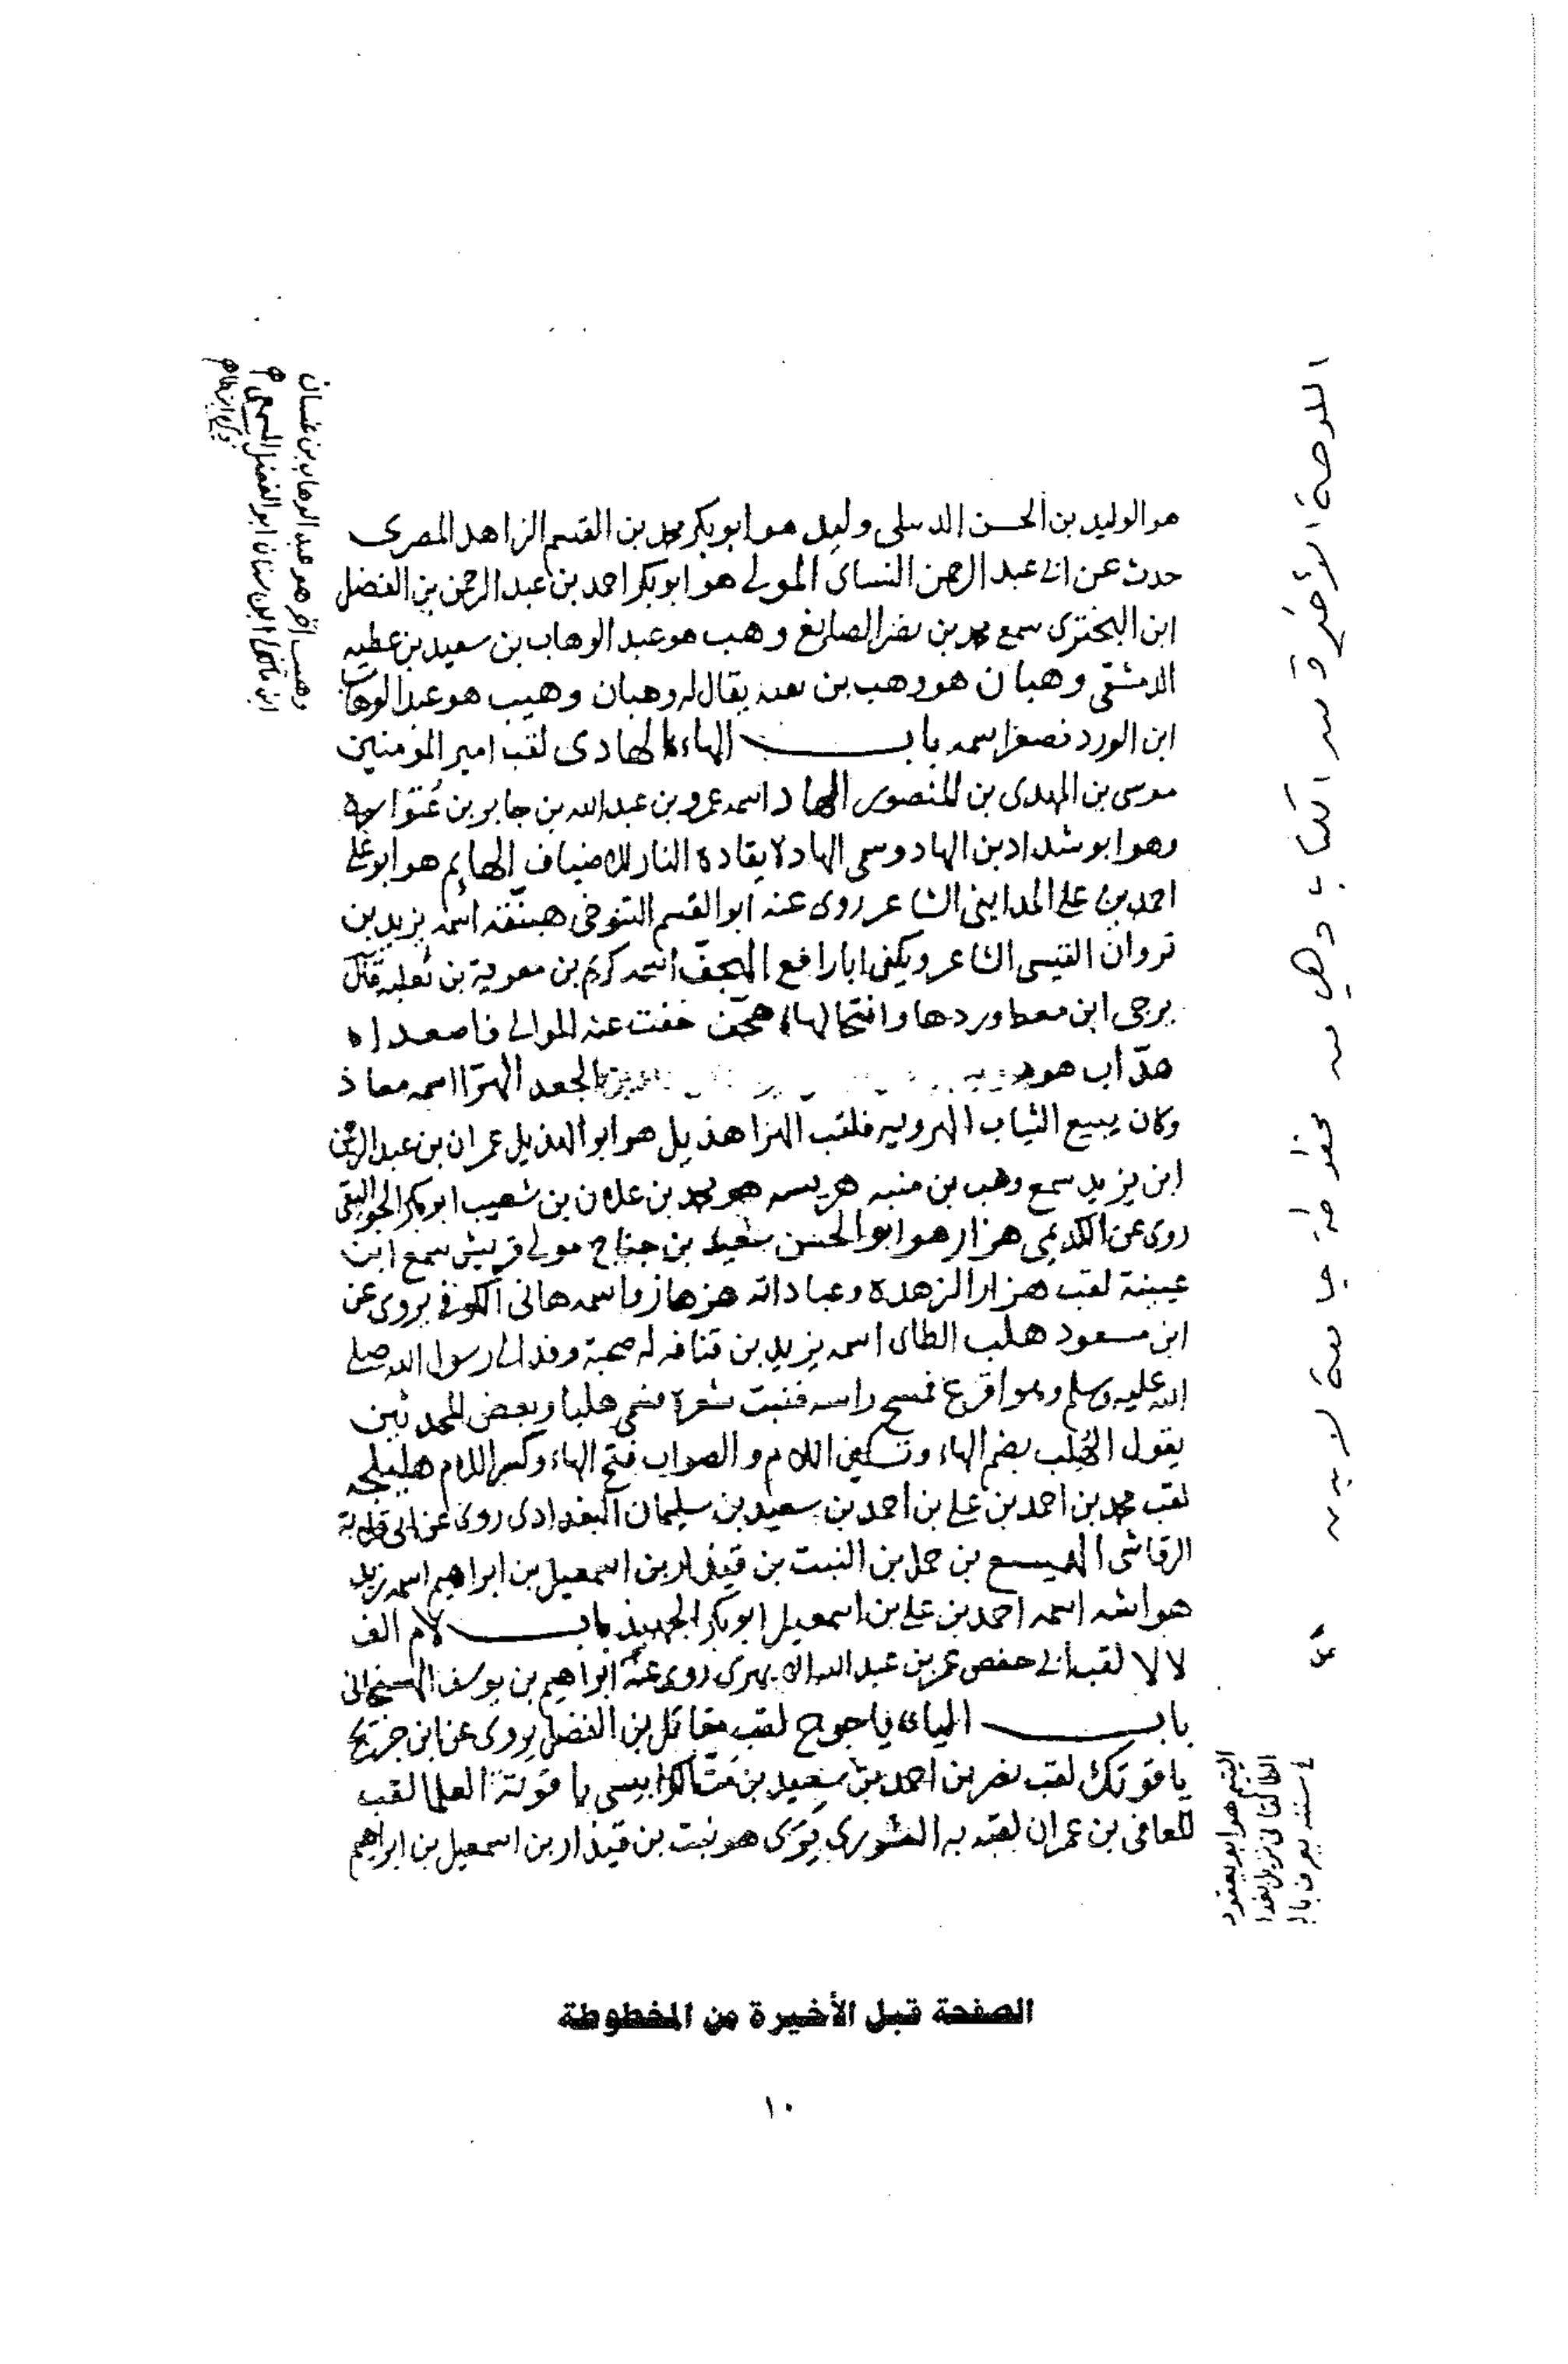 هو الوليد بن الحسن وليد هو ابو بكر محمد بن القسم الزاهد المصرى
حدث عن ابى عبد الرحمن النساى المولى هو ابو بكر احمد بن عبد الرحمن بن الفضل
ابن البخترى سمع محمد بن نصر الصايغ وهب هو عبد الوهاب بن سعيد بن عطيه
الدمشقى وهبان هو وهب بن بقيه يقال له وهبان وهيب هو عبد الوهاب
ابن الورد فصغر اسمه باب الهاء الهادى لقب امير المومنين
موسى بن المهدى بن المنصور الهاد اسمه عمرو بن عبد الله بن جابر بن عتوارة
وهو ابو شداد بن الهاد وسمى الهاد لايقاده النار للاضياف الهايم هو ابو على
احمد بن على المداينى الشاعر روى عنه ابو القسم التنوخى هبنقه اسمه يزيد بن
ثروان القيسى الشاعر ويكنى ابا رافع الهجف اسمه كريم بن معوية بن ثعلبه قال
يرجى ابن معط وردها هجف خفت عنه الموالى فاصعدا
هداب هو بن الجعد الهرا اسمه معاذ
وكان يبيع الثياب الهرويه فلقب الهرا هذيل هو ابو الهذيل عمران بن عبد الرحمن
ابن يزيد سمع وهب بن منبه هريسه هو محمد بن علان بن شعيب ابو بكر الجواليقى
روى عن الكديمى هزار هو ابو الحسن سعيد بن جناح مولى قريش سمع ابن
عيينة لقب هزارا لزهده وعباداته هزهاز واسمه هانى الكوفى يروى عن
ابن مسعود هلب الطاى اسمه يزيد بن قنافه له صحبة وفد الى رسول الله صلى
الله عليه وسلم وهو اقرع فمسح راسه فنبت شعره فسمى هلبا وبعض المحدثين
يقول الهلب بضم الهاء وتسكين اللام والصواب فتح الهاء وكسر اللام هليلجه
لقب محمد بن احمد بن على بن احمد بن سعيد بن سليمان البغدادى روى عن ابى قلابة
الرقاشى الهميسع بن حمل بن النبت بن قيذار بن اسمعيل بن ابراهيم اسمه زيد
اسمه احمد بن على بن اسمعيل ابو بكر باب لام الف
لالا لقب ابى حفص عمر بن عبد الله روى عنه ابراهيم بن يوسف
باب الياء ياجوج لقب مقاتل بن الفضل يروى عن ابن جريج
ياقوتك لقب نصر بن احمد بن سعيد بن ياقوتة العلما لقب
المعافى بن عمران لقبه به الثورى يرى هو نبت بن قيذار بن اسمعيل بن ابراهيم
وهب اخر هو عبد الوهاب بن غسان
ابن مالك ابن سنان ابو الفضل المسمعى
اللوحة الأخيرة من الكتاب وهي من مخطوطة جامعة لايدن
اليتيم هو ابو يعقوب
نزيل بغدا
يعرف بال
الصفحة قبل الأخيرة من المخطوطة
١٠